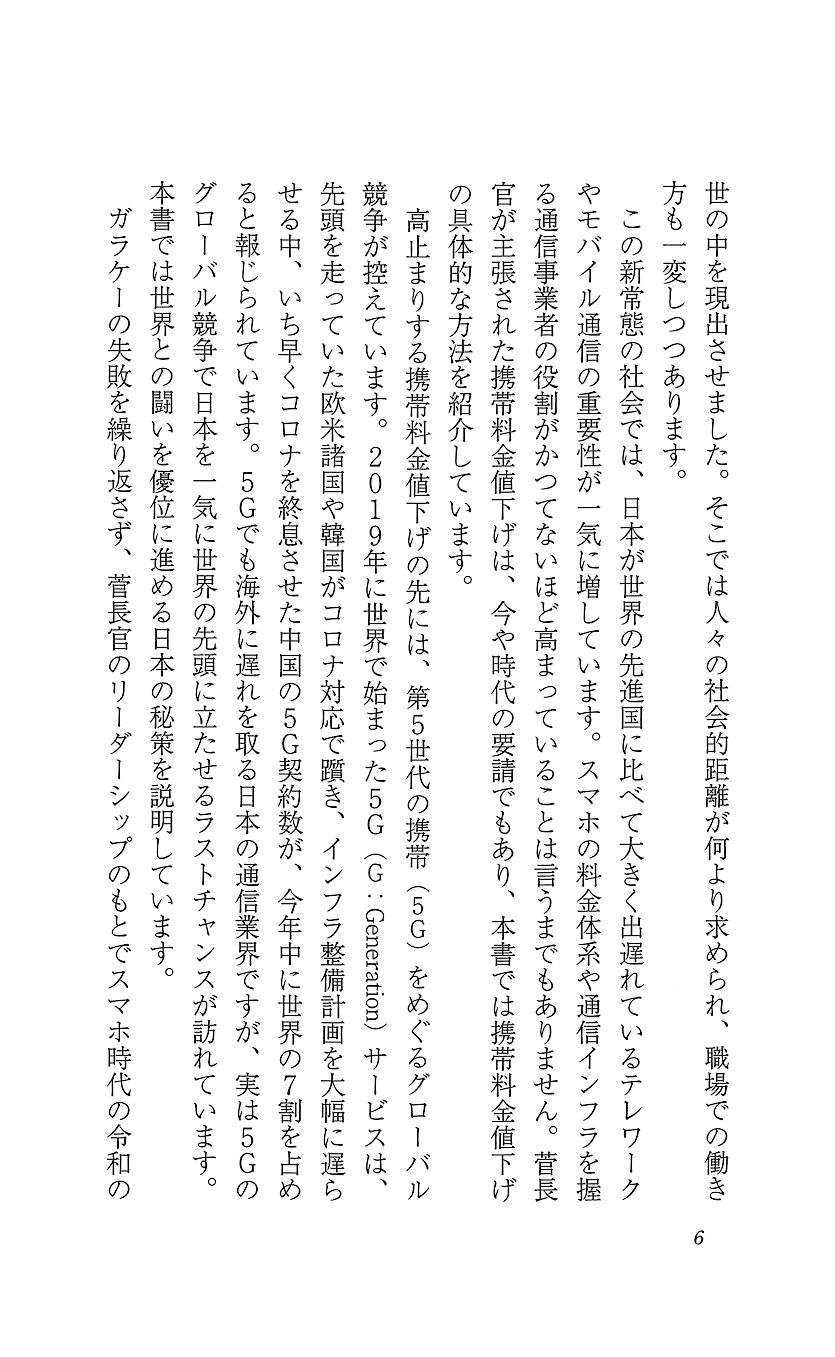 世の中を現出させました。そこでは人々の社会的距離が何より求められ、職場での働き
方も一変しつつあります。
この新常態の社会では、日本が世界の先進国に比べて大きく出遅れているテレワーク
やモバイル通信の重要性が一気に増しています。スマホの料金体系や通信インフラを握
る通信事業者の役割がかつてないほど高まっていることは言うまでもありません。菅長
官が主張された携帯料金値下げは、今や時代の要請でもあり、本書では携帯料金値下げ
の具体的な方法を紹介しています。
高止まりする携帯料金値下げの先には、第5世代の携帯（5G）をめぐるグローバル
競争が控えています。2019年に世界で始まった5G（G：Generation）サービスは、
先頭を走っていた欧米諸国や韓国がコロナ対応で躓き、インフラ整備計画を大幅に遅ら
せる中、いち早くコロナを終息させた中国の5G契約数が、今年中に世界の7割を占め
ると報じられています。5Gでも海外に遅れを取る日本の通信業界ですが、実は5Gの
グローバル競争で日本を一気に世界の先頭に立たせるラストチャンスが訪れています。
本書では世界との闘いを優位に進める日本の秘策を説明しています。
ガラケーの失敗を繰り返さず、菅長官のリーダーシップのもとでスマホ時代の令和の
6